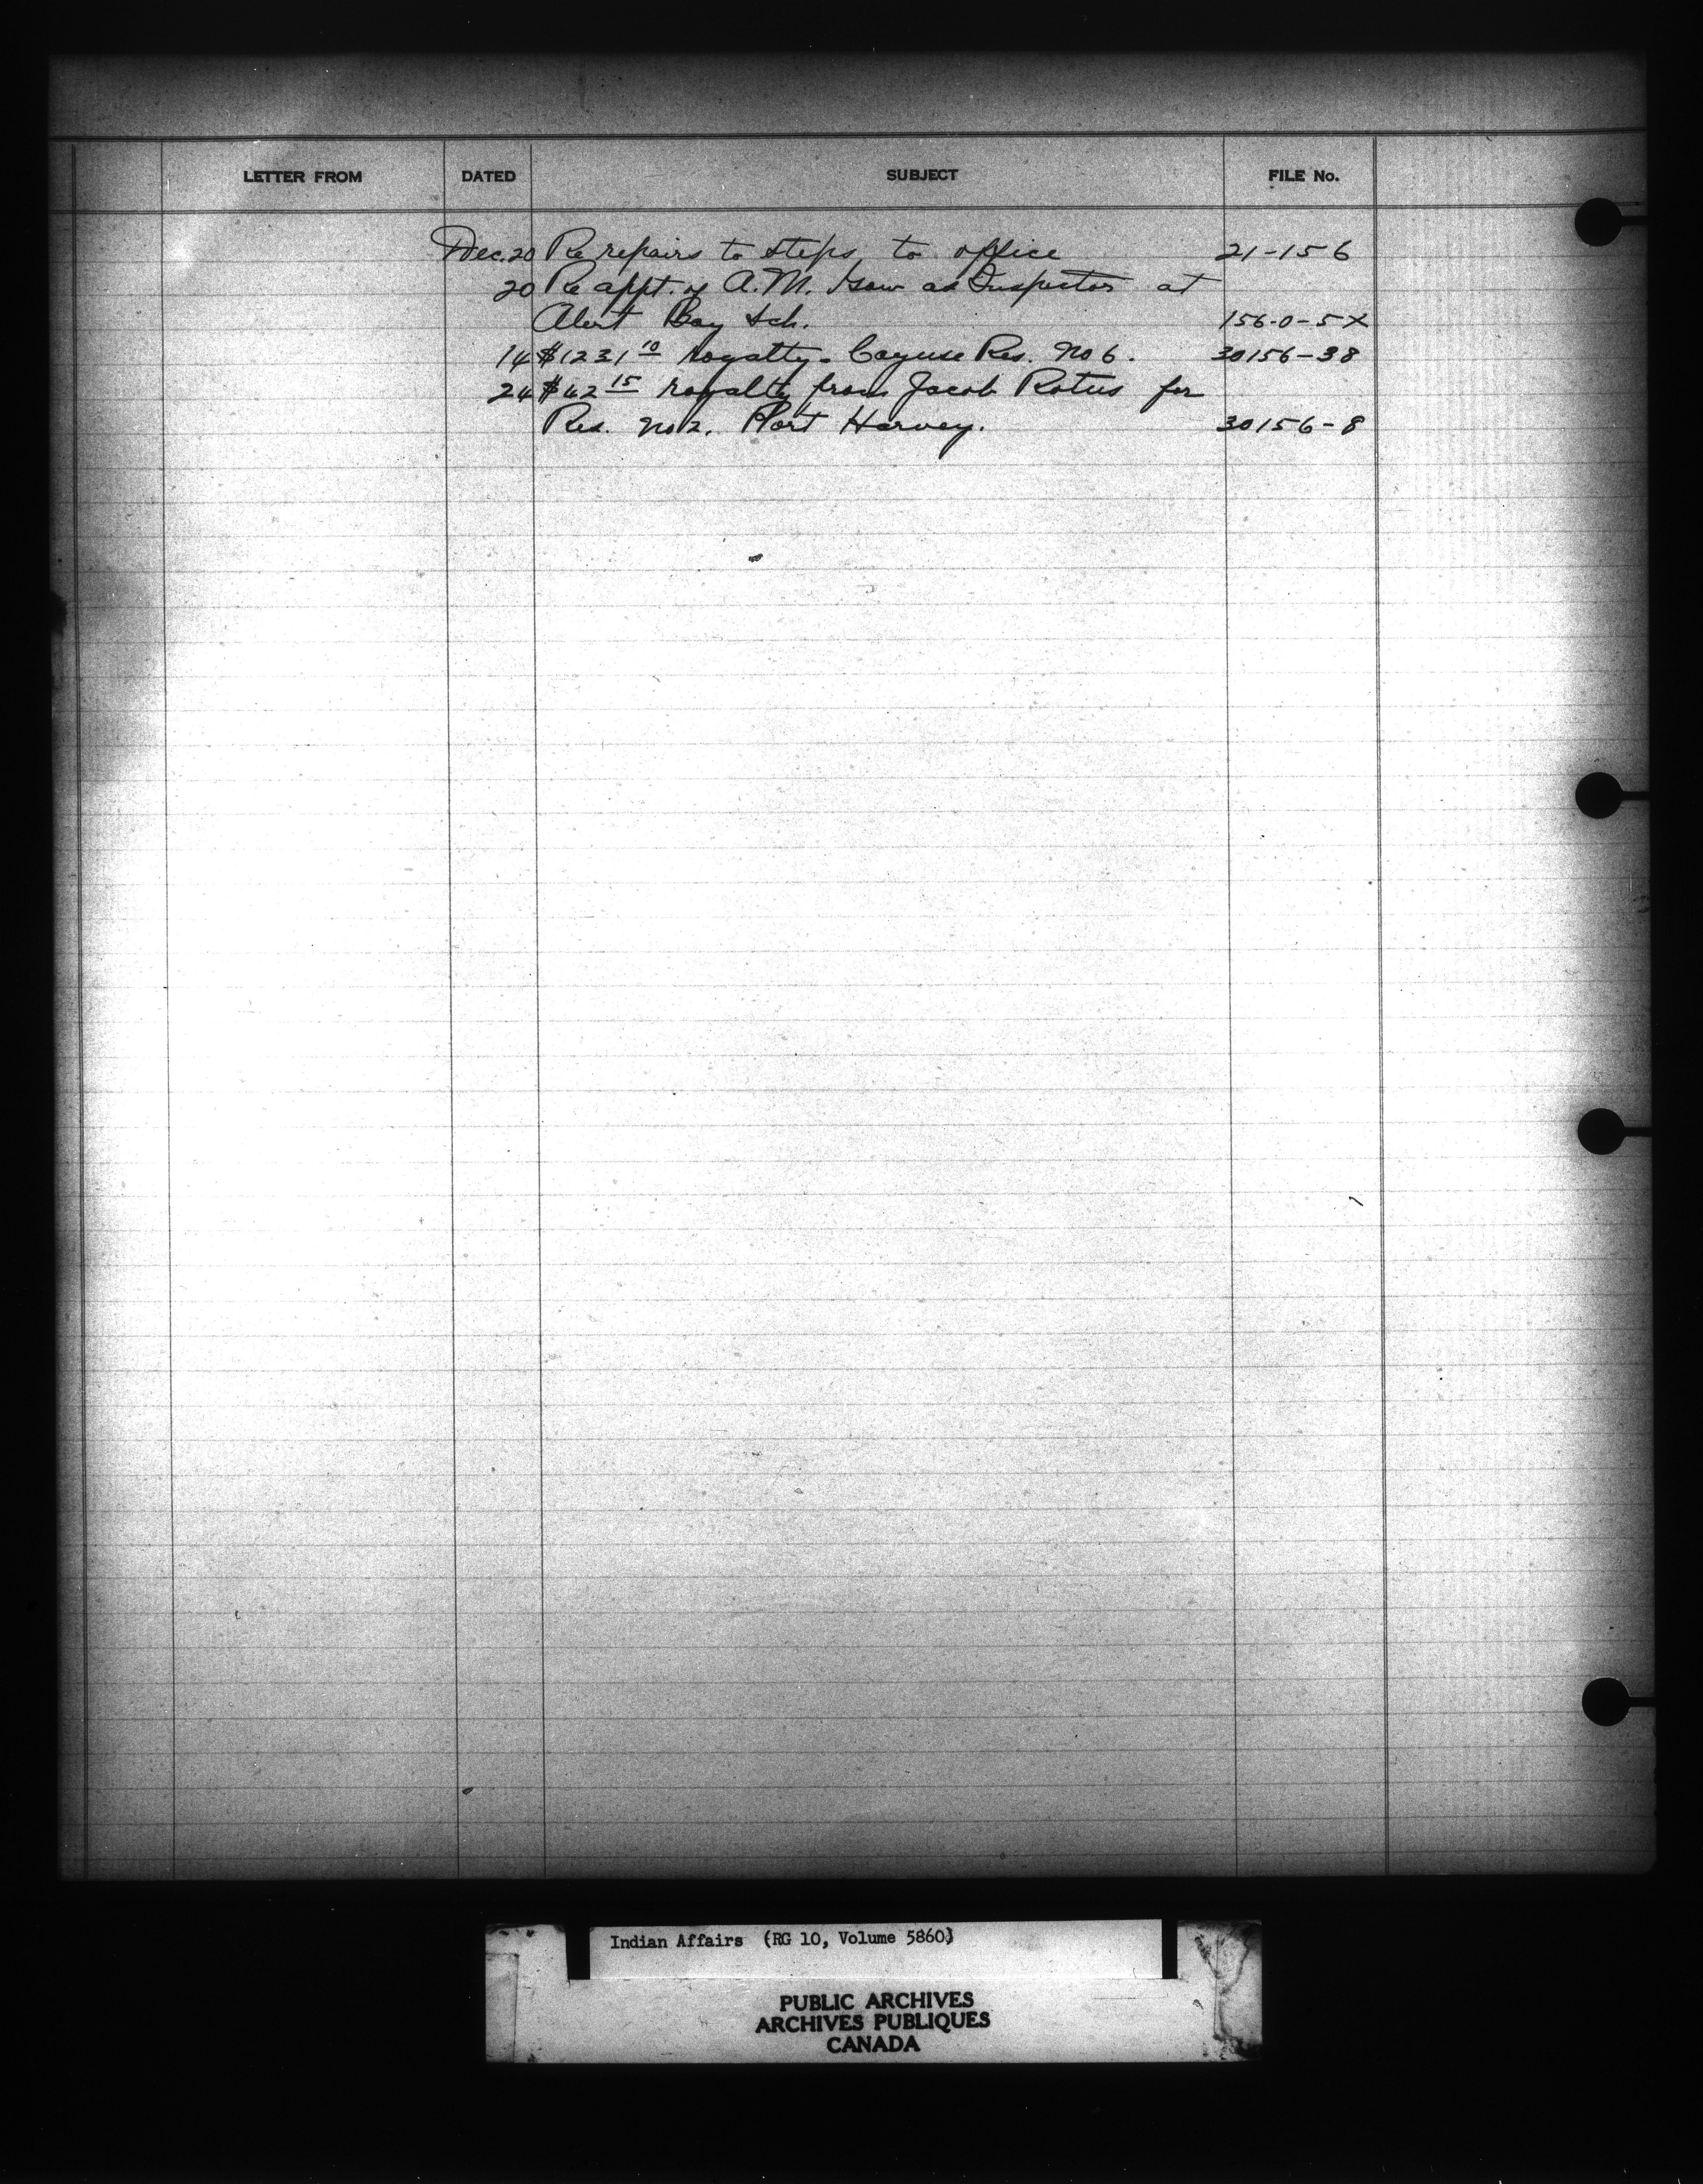 LETTER FROM DATED SUBJECT FILE No.
Dec. 20 Re repairs to steps to office 21-156
20 Re appt. of A. M. as Inspector at
Alert Bay Sch. 156-0-5X
14 $1231 10 royalty - Cayuse Res. No 6. 30156-38
24 $42 15 royalty from Jacob Rotus for
Res. No 2. Port Harvey. 30156-8
Indian Affairs (RG 10, Volume 5860)
PUBLIC ARCHIVES
ARCHIVES PUBLIQUES
CANADA